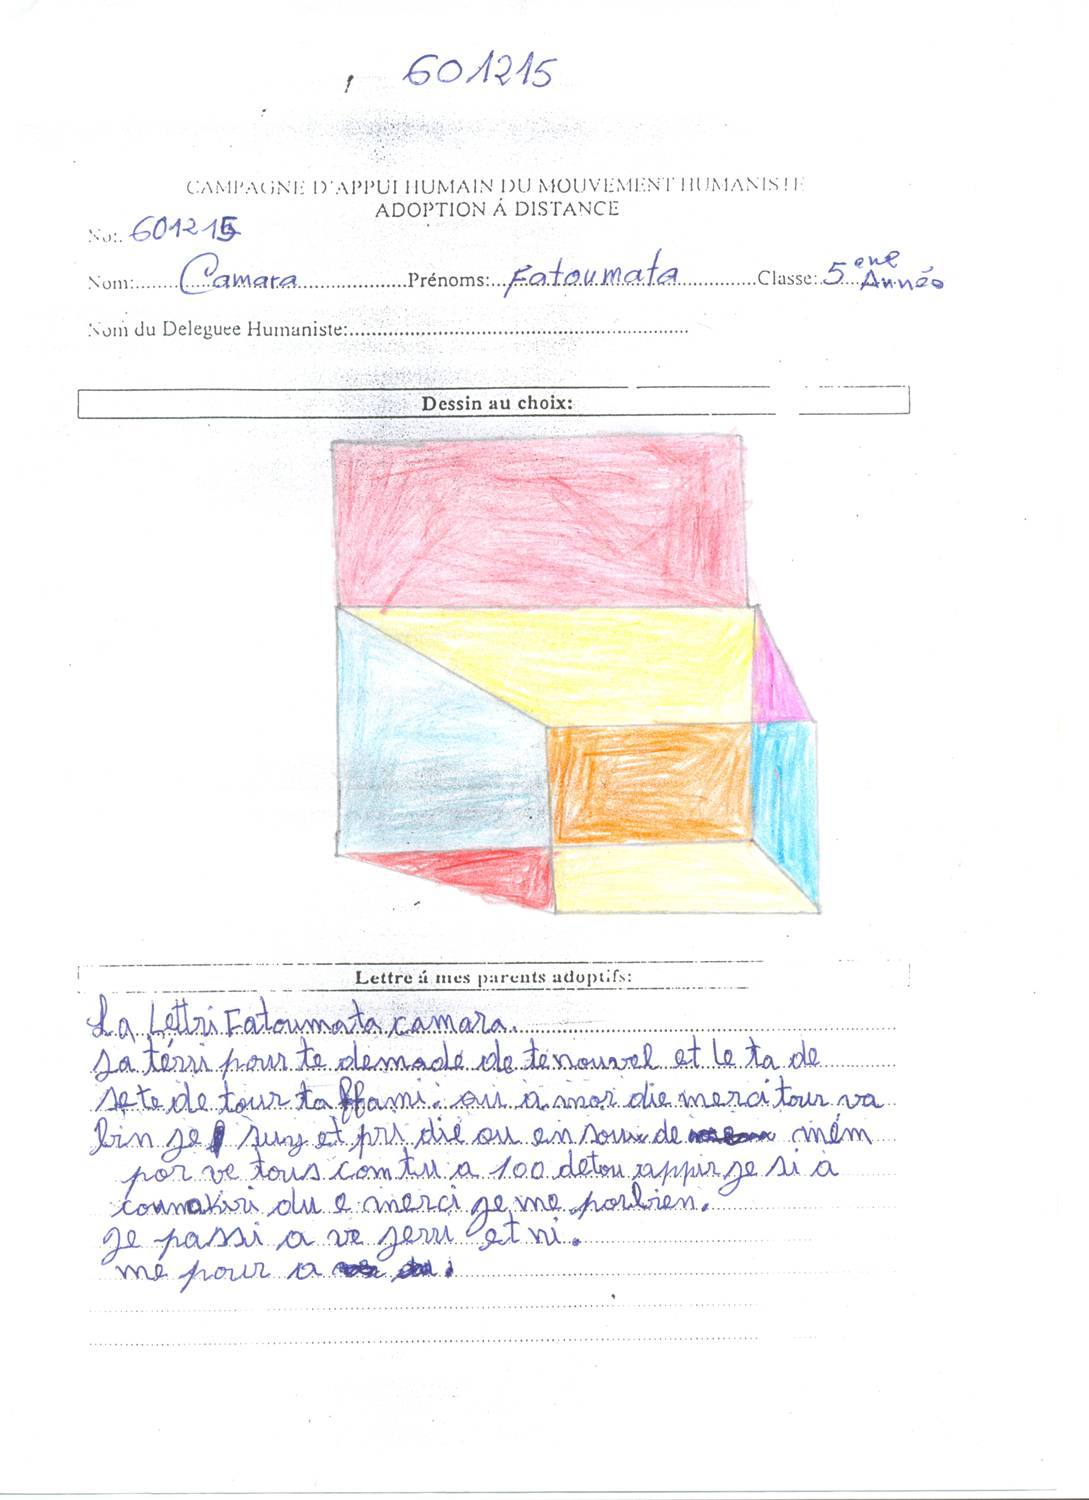 601215
CAMPAGNE D'APPUI HUMAIN DU MOUVEMENT HUMANISTE
ADOPTION Á DISTANCE
No:. 601215
Nom:.......Camara.................Prénoms:...Fatoumata............Classe:.5ene Année
Nom du Deleguee Humaniste:......................................................
Dessin au choix:
Lettre á mes parents adoptifs:
La Lettri Fatoumata camara.
Ja térri pour te demade de te nouvel et le ta de
sete de tour ta ffami. ou a mor die merci tour va
bin je suy et pri die ou en sour de mém
por ve tous com tu a 100 detou appir je si à
counakiri du e merci je me porbien.
je passi a ve jerri et ni.
mé pour a